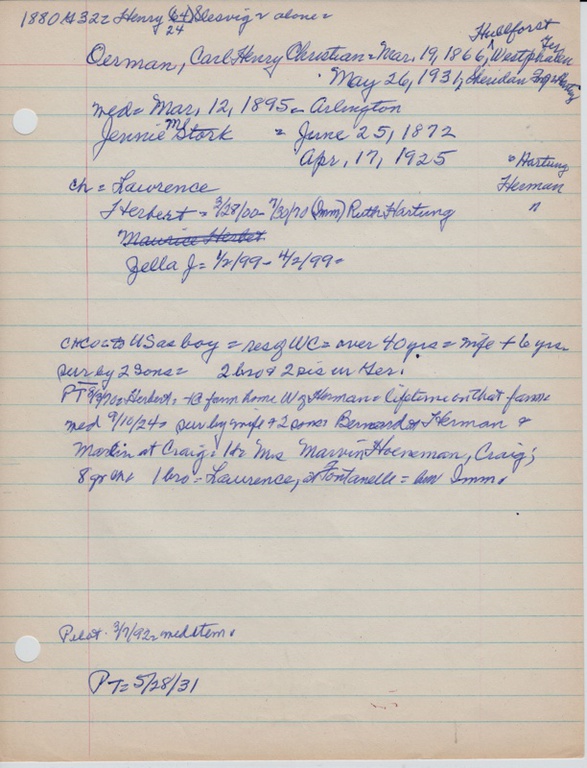 1880 #322 Henry (64) Slesvig = alone =
24
Hullforst
Oerman, Carl Henry Christian = Mar. 19, 1866, Westphalen Ger
May 26, 1931, Sheridan
med = Mar, 12, 1895 = Arlington
Jennie M Stork = June 25, 1872
Apr, 17, 1925
= Hartung
ch = Lawrence
Herman
Herbert = 3/28/00 - 7/30/70 (Imm) Ruth Hartung
"
Maurice Herbet
Zella J = 1/2/99 - 4/2/99 =
to US as boy = res of WC = over 40 yrs = wife + 6 yrs
sur by 2 sons = 2 bro & 2 sis in Ger.
PT Herbert = farm home W of Herman = lifetime on that farm =
med 9/10/24 = sur by wife & 2 sons Bernard of Herman &
Marlin at Craig = 1 da Mrs Marvin Hoeneman, Craig;
8 gr ch 1 bro = Lawrence, at Fontanelle = bur Imm.
Pilot 3/7/92 = med item.
PT = 5/28/31